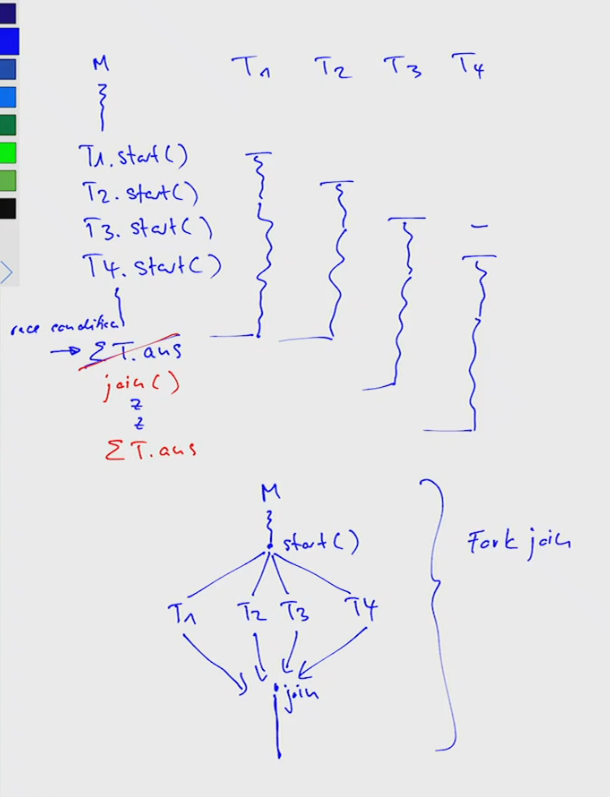 M T1 T2 T3 T4
T1.start()
T2.start()
T3.start()
T4.start()
race condition
→ ΣT.ans
join()
z
z
ΣT.ans
M
start()
T1 T2 T3 T4
join
Fork join